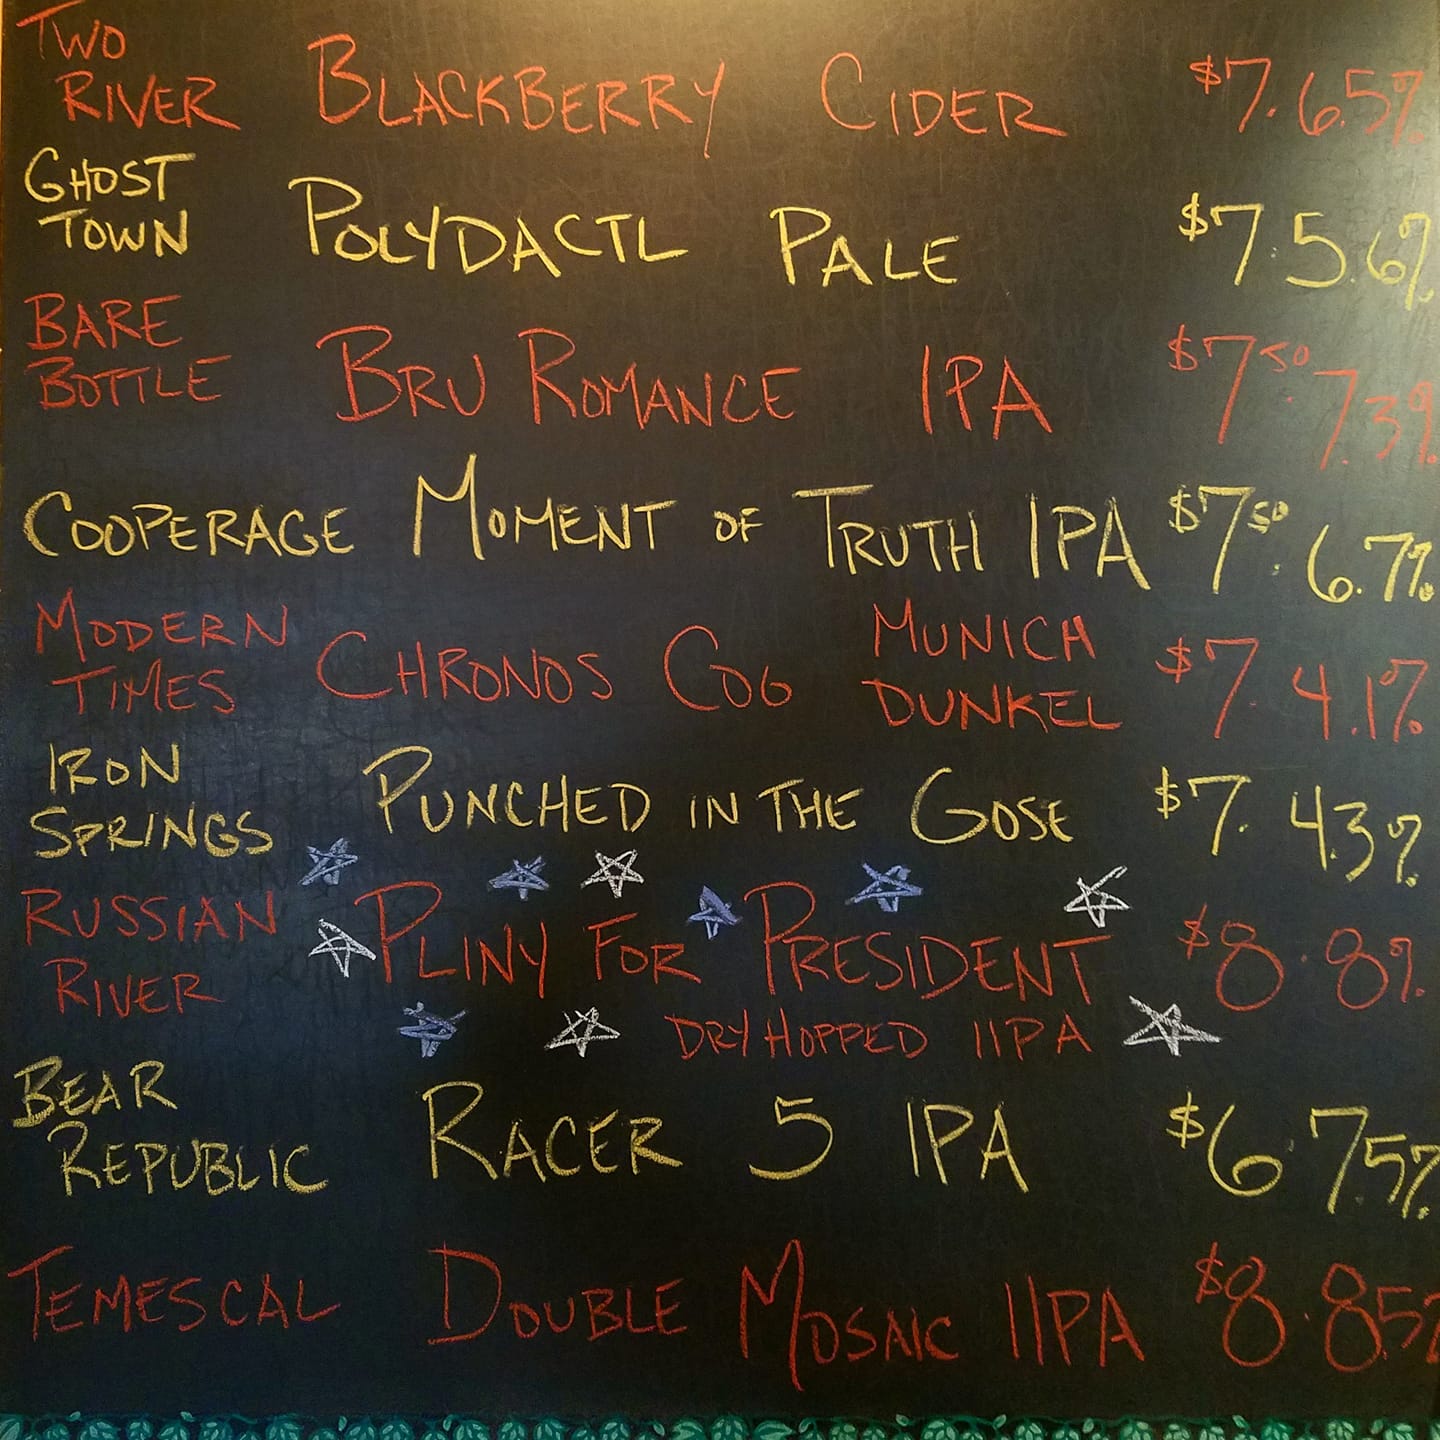 TWO RIVER BLACKBERRY CIDER $7. 6.5%
GHOST TOWN POLYDACTL PALE $7. 5.6%
BARE BOTTLE BRU ROMANCE IPA $7.50 7.3%
COOPERAGE MOMENT OF TRUTH IPA $7.50 6.7%
MODERN TIMES CHRONOS COG MUNICH DUNKEL $7. 4.1%
IRON SPRINGS PUNCHED IN THE GOSE $7. 4.3%
RUSSIAN RIVER PLINY FOR PRESIDENT $8. 8%
DRY HOPPED IIPA
BEAR REPUBLIC RACER 5 IPA $6. 7.5%
TEMESCAL DOUBLE MOSAIC IIPA $8. 8.5%